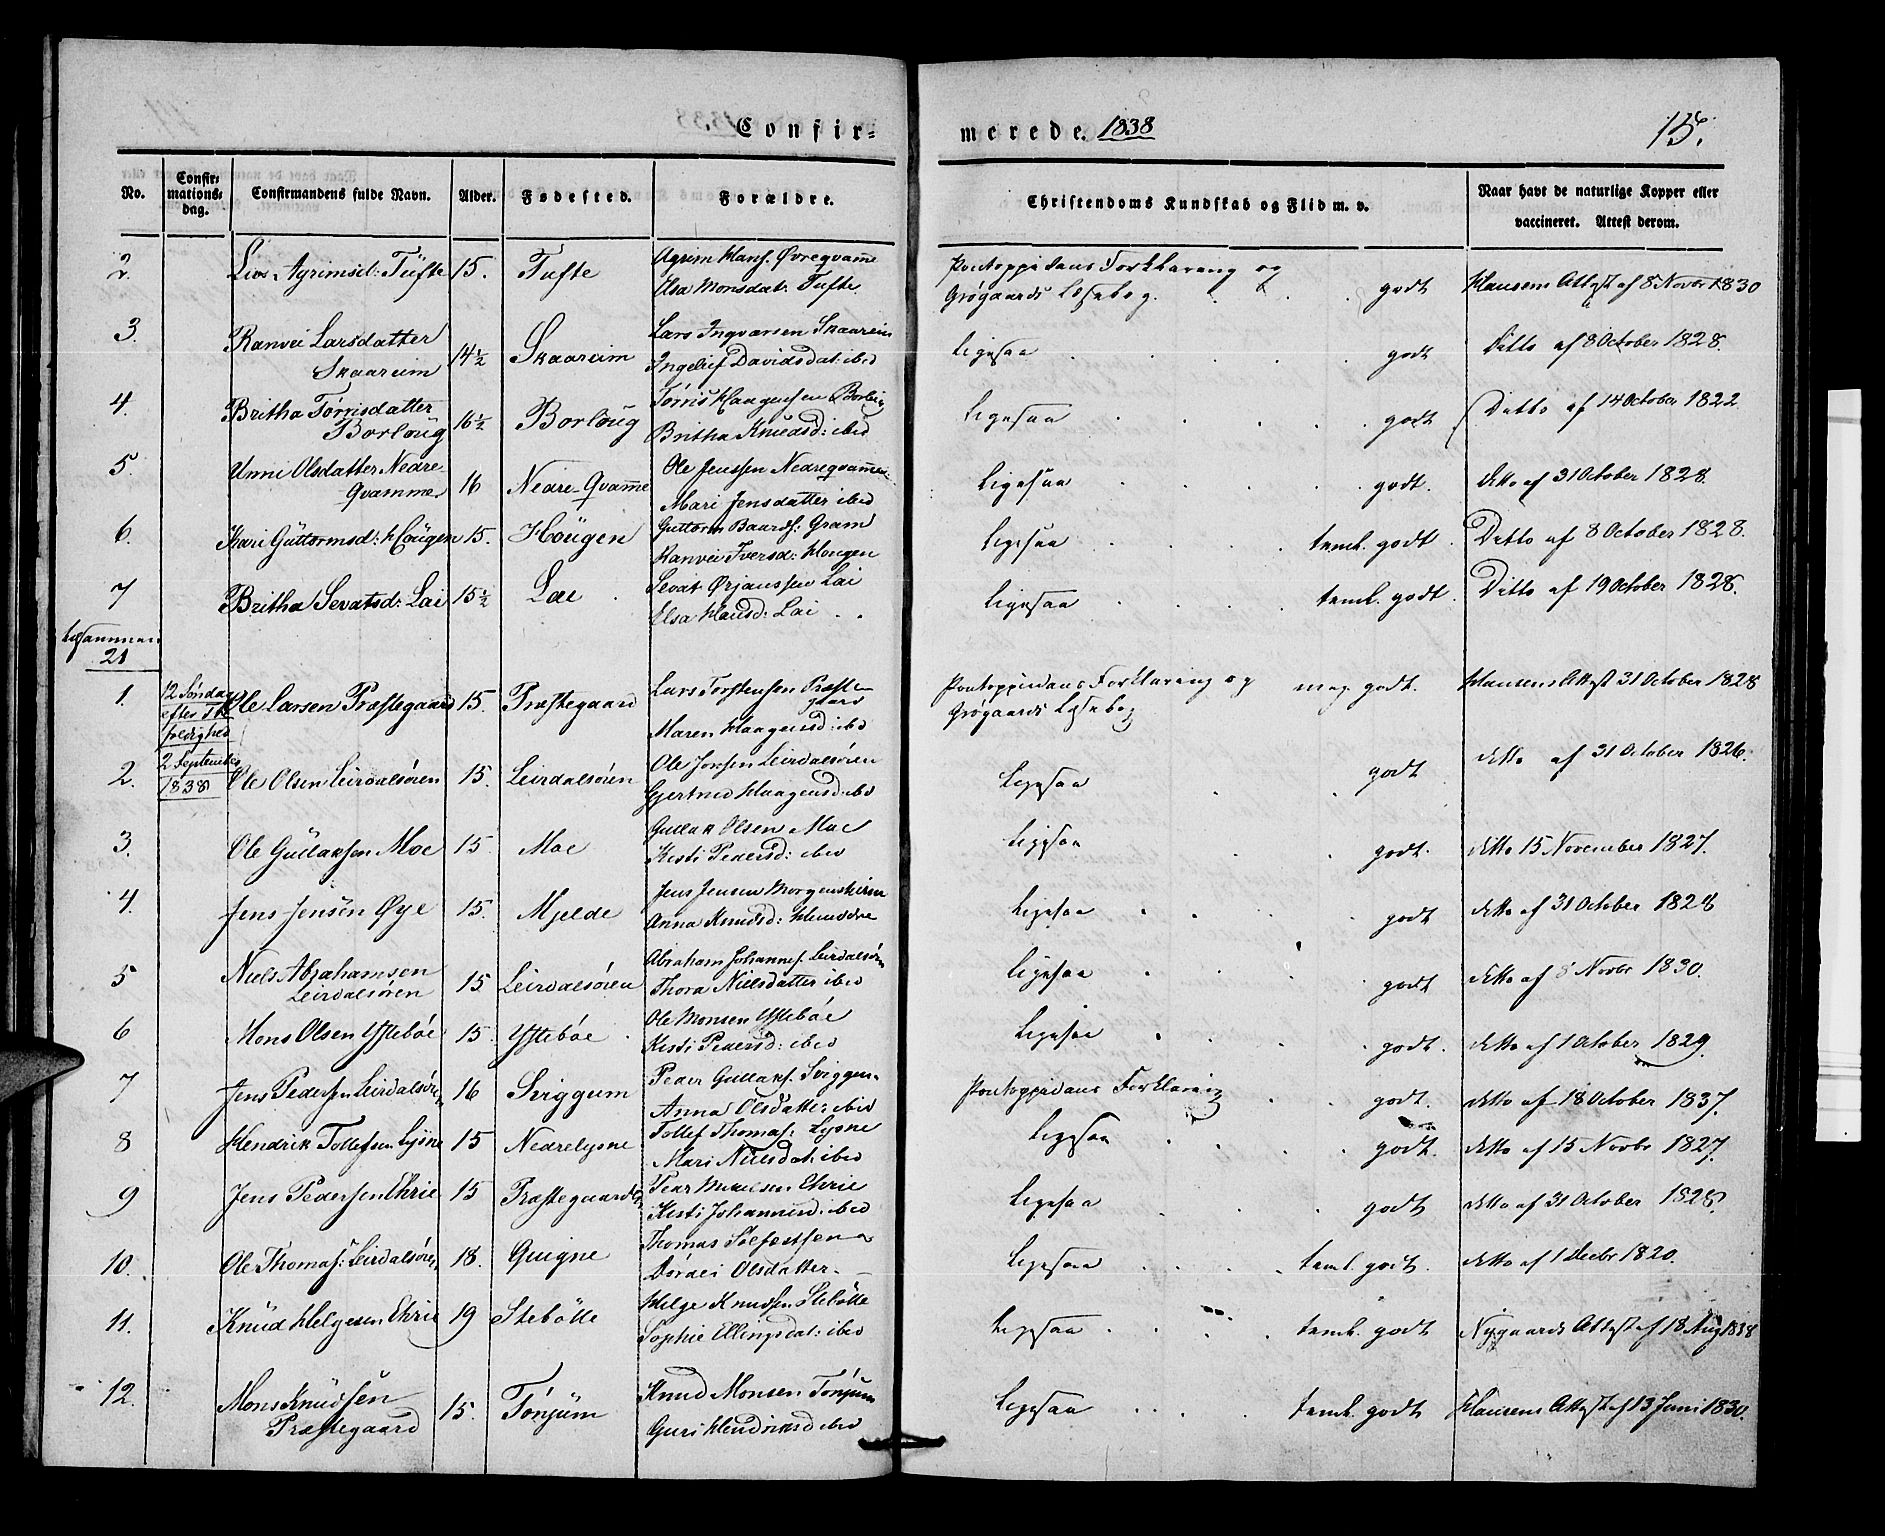 Confir- merede. 1838 15.
No. Confir- mations- dag. Confirmandens fulde Navn. Alder. Fødested. Forældre. Christendoms Kundskab og Flid m. v. Naar havt de naturlige Kopper eller vaccineret. Attest derom.
2. Agrimsd: Tüfte 15. Tufte Agrim Hans. Øvreqvam̅e Pontoppidans Forklaring og
Elsa Monsdat: Tufte Grøgaards Læsebog. godt Hansens Attest af 8 Novbr 1830
3. Ranvei Larsdatter Lars Ingvarsen Skaareim
Skaareim 14½ Skaareim Ingelief Davidsdat: ibid Ligesaa godt Ditto af 8 October 1828.
4. Britha Tørrisdatter Tørris Haagensen
Borloüg 16½ Borloüg Britha Knudsd: ibid Ligesaa godt Ditto af 14 October 1822
5. Unni Olsdatter Nedre- Ole Jenssen Nedreqvam̅e
Qvamme 16 Nedre-Qvam̅e Mari Jensdatter ibid Ligesaa godt. ditto af 31 October 1828.
6. Kari Güttormsd: Hoügen 15. Hoügen Guttorm Baards: Gram
Ranvei Iversd: Hougen Ligesaa taml. godt. Ditto af 8 October 1828.
7 Britha Sevatsd: Lai 15½ Lae Sevat Ørjanssen Lai
Elsa Hansd: Lai Ligesaa taml. godt. Ditto af 19 October 1828.
tilsammen
21
1. 12 Søndag Ole Larsen Præstegaard 15. Præstegaard Lars Torstensen Præste- gaard Pontoppidans Forklaring og meg. godt. Hansens Attest 31 October 1828
efter Tre- foldighed Maren Haagensd: ibid Grøgaards Læsebog
2. 2 September 1838 Ole Olsen Leirdalsøren 15. Leirdalsøren Ole Jonsen Leirdalsören
Gjertrud Haagensd: ibid Ligesaa godt ditto af 31 October 1826.
3. Ole Güllaksen Moe 15. Moe Gullak Olsen Moe
Kisti Pedersd: ibid Ligesaa godt. ditto 15 November 1827.
4. Jens Jensen Øye 15. Mjelde Jens Jensen Morgenstiern
Anna Knudsd: Ligesaa godt ditto af 31 October 1828
5 Niels Abrahamsen Abraham Johannes. Leirdalsören
Leirdalsören 15 Leirdalsören Thora Nielsdatter ibid Ligesaa godt. ditto af 8 Novbr 1830.
6 Mons Olsen Ystebøe 15. Ystebøe Ole Monsen Ystebøe
Kisti Pedersd: ibid Ligesaa godt. ditto af 1 October 1829.
7 Jens Pedersen Leirdalsøren 16 Sviggum Peder Gullaks. Sviggum
Anna Olsdatter ibid Pontoppidans Forklaring godt. ditto af 18 October 1837.
8 Hendrik Tollefsen Lysne 15 Nedrelysne Tollef Thomas: Lysne
Mari Nielsdat: ibid Ligesaa godt. ditto af 15 Novbr 1827.
9 Jens Pedersen Ehrie 15 Præstegaarden Pear Mikelsen Ehrie
Kisti Johannesd: ibid Ligesaa godt ditto af 31 October 1828.
10. Ole Thomas: Leirdalsøren 18. Guigne Thomas Solfestsen
Dordei Olsdatter Ligesaa taml. godt. ditto af 1 Decbr 1820.
11. Knüd Helgesen Ehrie 19 Stebötte Helge Knudsen Stebötte
Sophie Ellingsdat: ibid Ligesaa taml. godt Nygaards Attest af 18 Aug 1838
12. Mons Knüdsen Knud Monsen Tonjum
Præstegaard 15. Tønjüm Guri Hendriksd ibid Ligesaa taml. godt Hansens Attest af 13 Juni 1830.